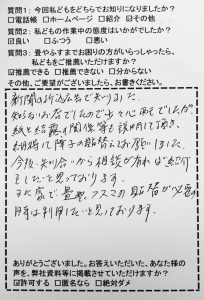 質問1:今回私どもをどちらでお知りになりましたか?
□電話帳 □ホームページ □紹介 ☑その他
質問2:私どもの作業中の態度はいかがでしたか?
☑良い □ふつう □悪い
質問3:畳やふすまでお困りの方がいらっしゃったら、
私どもをご推薦いただけますか?
☑推薦できる □推薦できない □分からない
その他、ご要望がございましたら、お書きください。
新聞の折込広告で知りました。
知らないお店でしたので少々心配でしたが、
紙を建具の関係等を説明して頂き、
納得して障子の貼替えをお願いしました。
今後、知り合いから相談があれば紹介
をしたいと思っております。
また家で畳や、フスマの貼替が必要の
時は利用したいと思っております。
ありがとうございました。お答えいただいた、あなた様の
声を、弊社資料等に掲載させていただけますか?
☑許可する □匿名なら □絶対ダメ